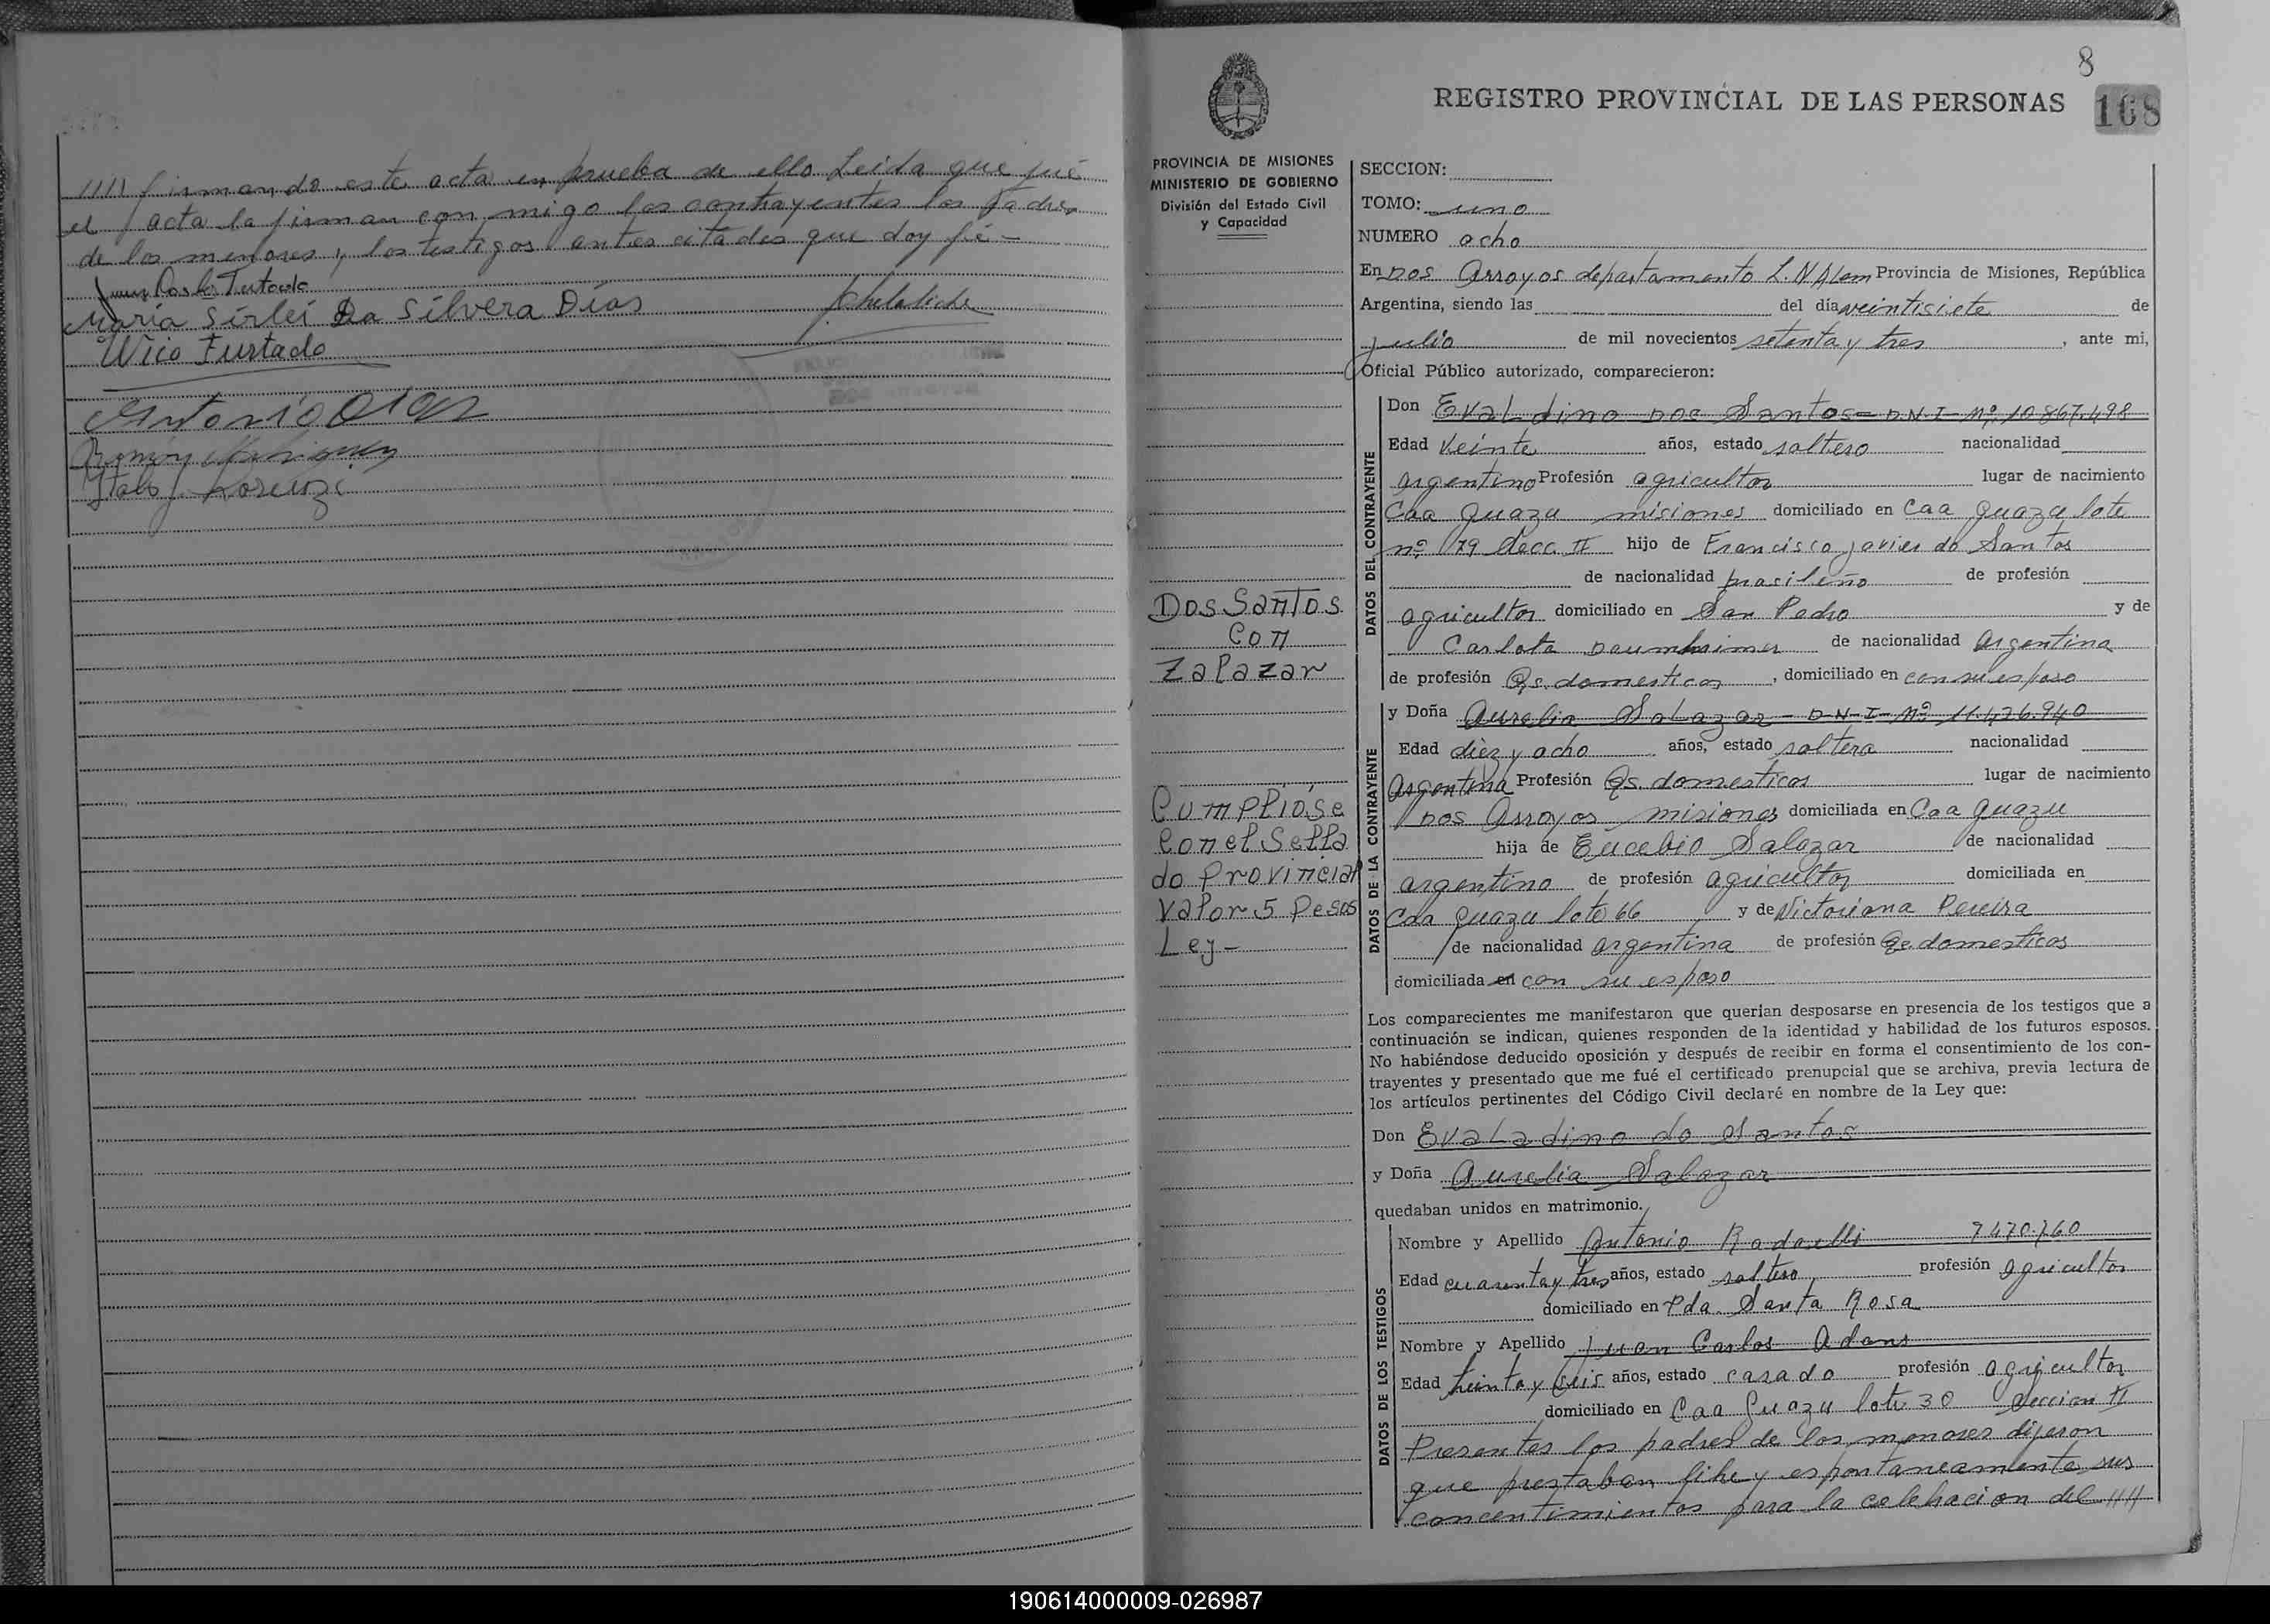 //// firmando este acta en prueba de ello Leida que fué
el acta la firman con migo los contrayentes los Padres
de los menores, y los testigos antes citados que doy fé -
Juan Carlos Furtado
Maria Sirlei Da Silvera Días
Wico Furtado
Antonio Dias
Ramón
Italo J. Lorenzi
8
168
REGISTRO PROVINCIAL DE LAS PERSONAS
PROVINCIA DE MISIONES
MINISTERIO DE GOBIERNO
División del Estado Civil
y Capacidad
Dos Santos
con
Zalazar
Cumplióse
con el Sella
do Provincial
Valor 5 Pesos
Ley -
SECCION:
TOMO: uno
NUMERO ocho
En Dos Arroyos departamento L. N Alem Provincia de Misiones, República
Argentina, siendo las del día veintisiete de
julio de mil novecientos setenta y tres, ante mi,
Oficial Público autorizado, comparecieron:
DATOS DEL CONTRAYENTE
Don Evaldino Dos Santos - D.N.I. Nº 10.867.498
Edad Veinte años, estado soltero nacionalidad
argentino Profesión agricultor lugar de nacimiento
Caa Guazu misiones domiciliado en Caa Guazu lote
nº 79 Secc. II hijo de Francisco javier do Santos
de nacionalidad brasileño de profesión
agricultor domiciliado en San Pedro y de
Carlota de nacionalidad argentina
de profesión Qs. domesticos, domiciliado en con su esposo
DATOS DE LA CONTRAYENTE
y Doña Aurelia Salazar - D-N-I- Nº 11.476.940
Edad diez y ocho años, estado soltera nacionalidad
Argentina Profesión Qs. domesticos lugar de nacimiento
Dos Arroyos misiones domiciliada en Caa Guazu
hija de Eucebio Salazar de nacionalidad
argentino de profesión agricultor domiciliada en
Caa Guazu lote 66 y de Victoriana Pereira
de nacionalidad argentina de profesión Qs. domesticos
domiciliada en con su esposo
Los comparecientes me manifestaron que querían desposarse en presencia de los testigos que a
continuación se indican, quienes responden de la identidad y habilidad de los futuros esposos.
No habiéndose deducido oposición y después de recibir en forma el consentimiento de los con-
trayentes y presentado que me fué el certificado prenupcial que se archiva, previa lectura de
los artículos pertinentes del Código Civil declaré en nombre de la Ley que:
Don Evaladino do Santos
y Doña Aurelia Salazar
quedaban unidos en matrimonio.
DATOS DE LOS TESTIGOS
Nombre y Apellido Antonio Radaelli 7470.760
Edad cuarenta y tres años, estado soltero profesión agricultor
domiciliado en Pda. Santa Rosa
Nombre y Apellido Juan Carlos Adans
Edad treinta y seis años, estado casado profesión agricultor
domiciliado en Caa Guazu lote 30 Seccion II
Presentes los padres de los menores dijeron
que prestaban libre y espontaneamente sus
concentimientos para la celebracion del ////
190614000009-026987